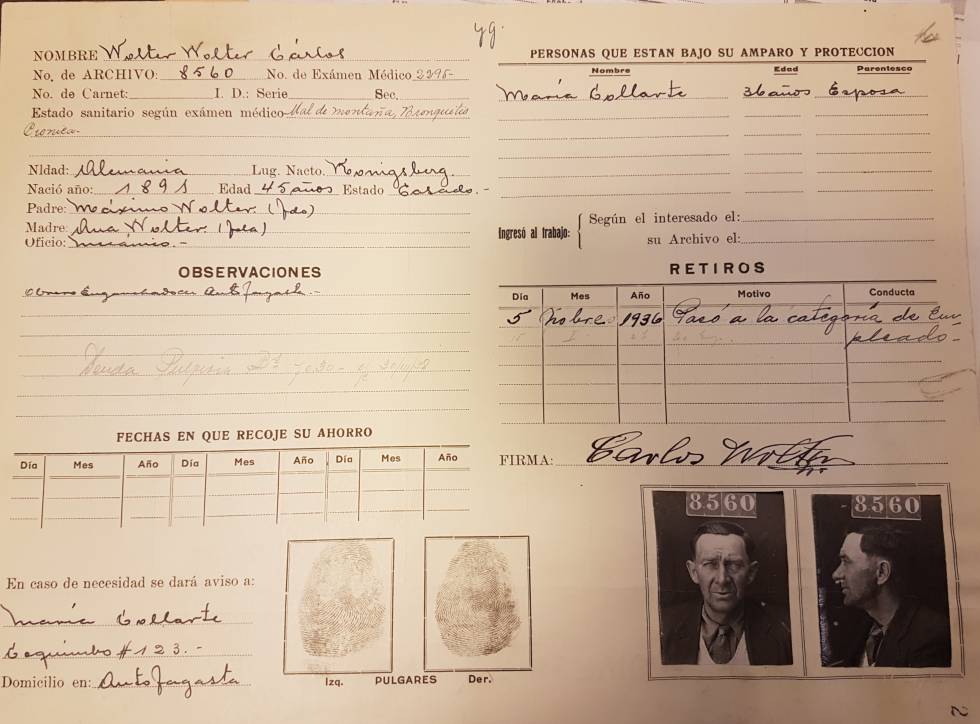 yg.
NOMBRE Wolter Wolter Cárlos
No. de ARCHIVO: 8560 No. de Exámen Médico 2295-
No. de Carnet: I. D.: Serie Sec.
Estado sanitario según exámen médico Mal de montaña, Bronquitis
Cronica-
Nldad: Alemania Lug. Nacto. Konigsberg.
Nació año: 1891 Edad 45 años Estado Casado.-
Padre: Máximo Wolter. (fdo)
Madre: Ana Wolter. (fda)
Oficio: mecánico.-
OBSERVACIONES
Obrero Enganchado en Antofagasta.-
Deuda Pulperia
FECHAS EN QUE RECOJE SU AHORRO
Día Mes Año Día Mes Año Día Mes Año
En caso de necesidad se dará aviso a:
María Collarte
Coquimbo #123.-
Domicilio en: Antofagasta
Izq. PULGARES Der.
PERSONAS QUE ESTAN BAJO SU AMPARO Y PROTECCION
Nombre Edad Parentesco
María Collarte 36 años Esposa
Ingresó al trabajo:
Según el interesado el:
su Archivo el:
RETIROS
Día Mes Año Motivo Conducta
5 Nobre 1936 Pasó a la categoría de Em-
pleado-
FIRMA: Carlos Wolter
8560
8560
2